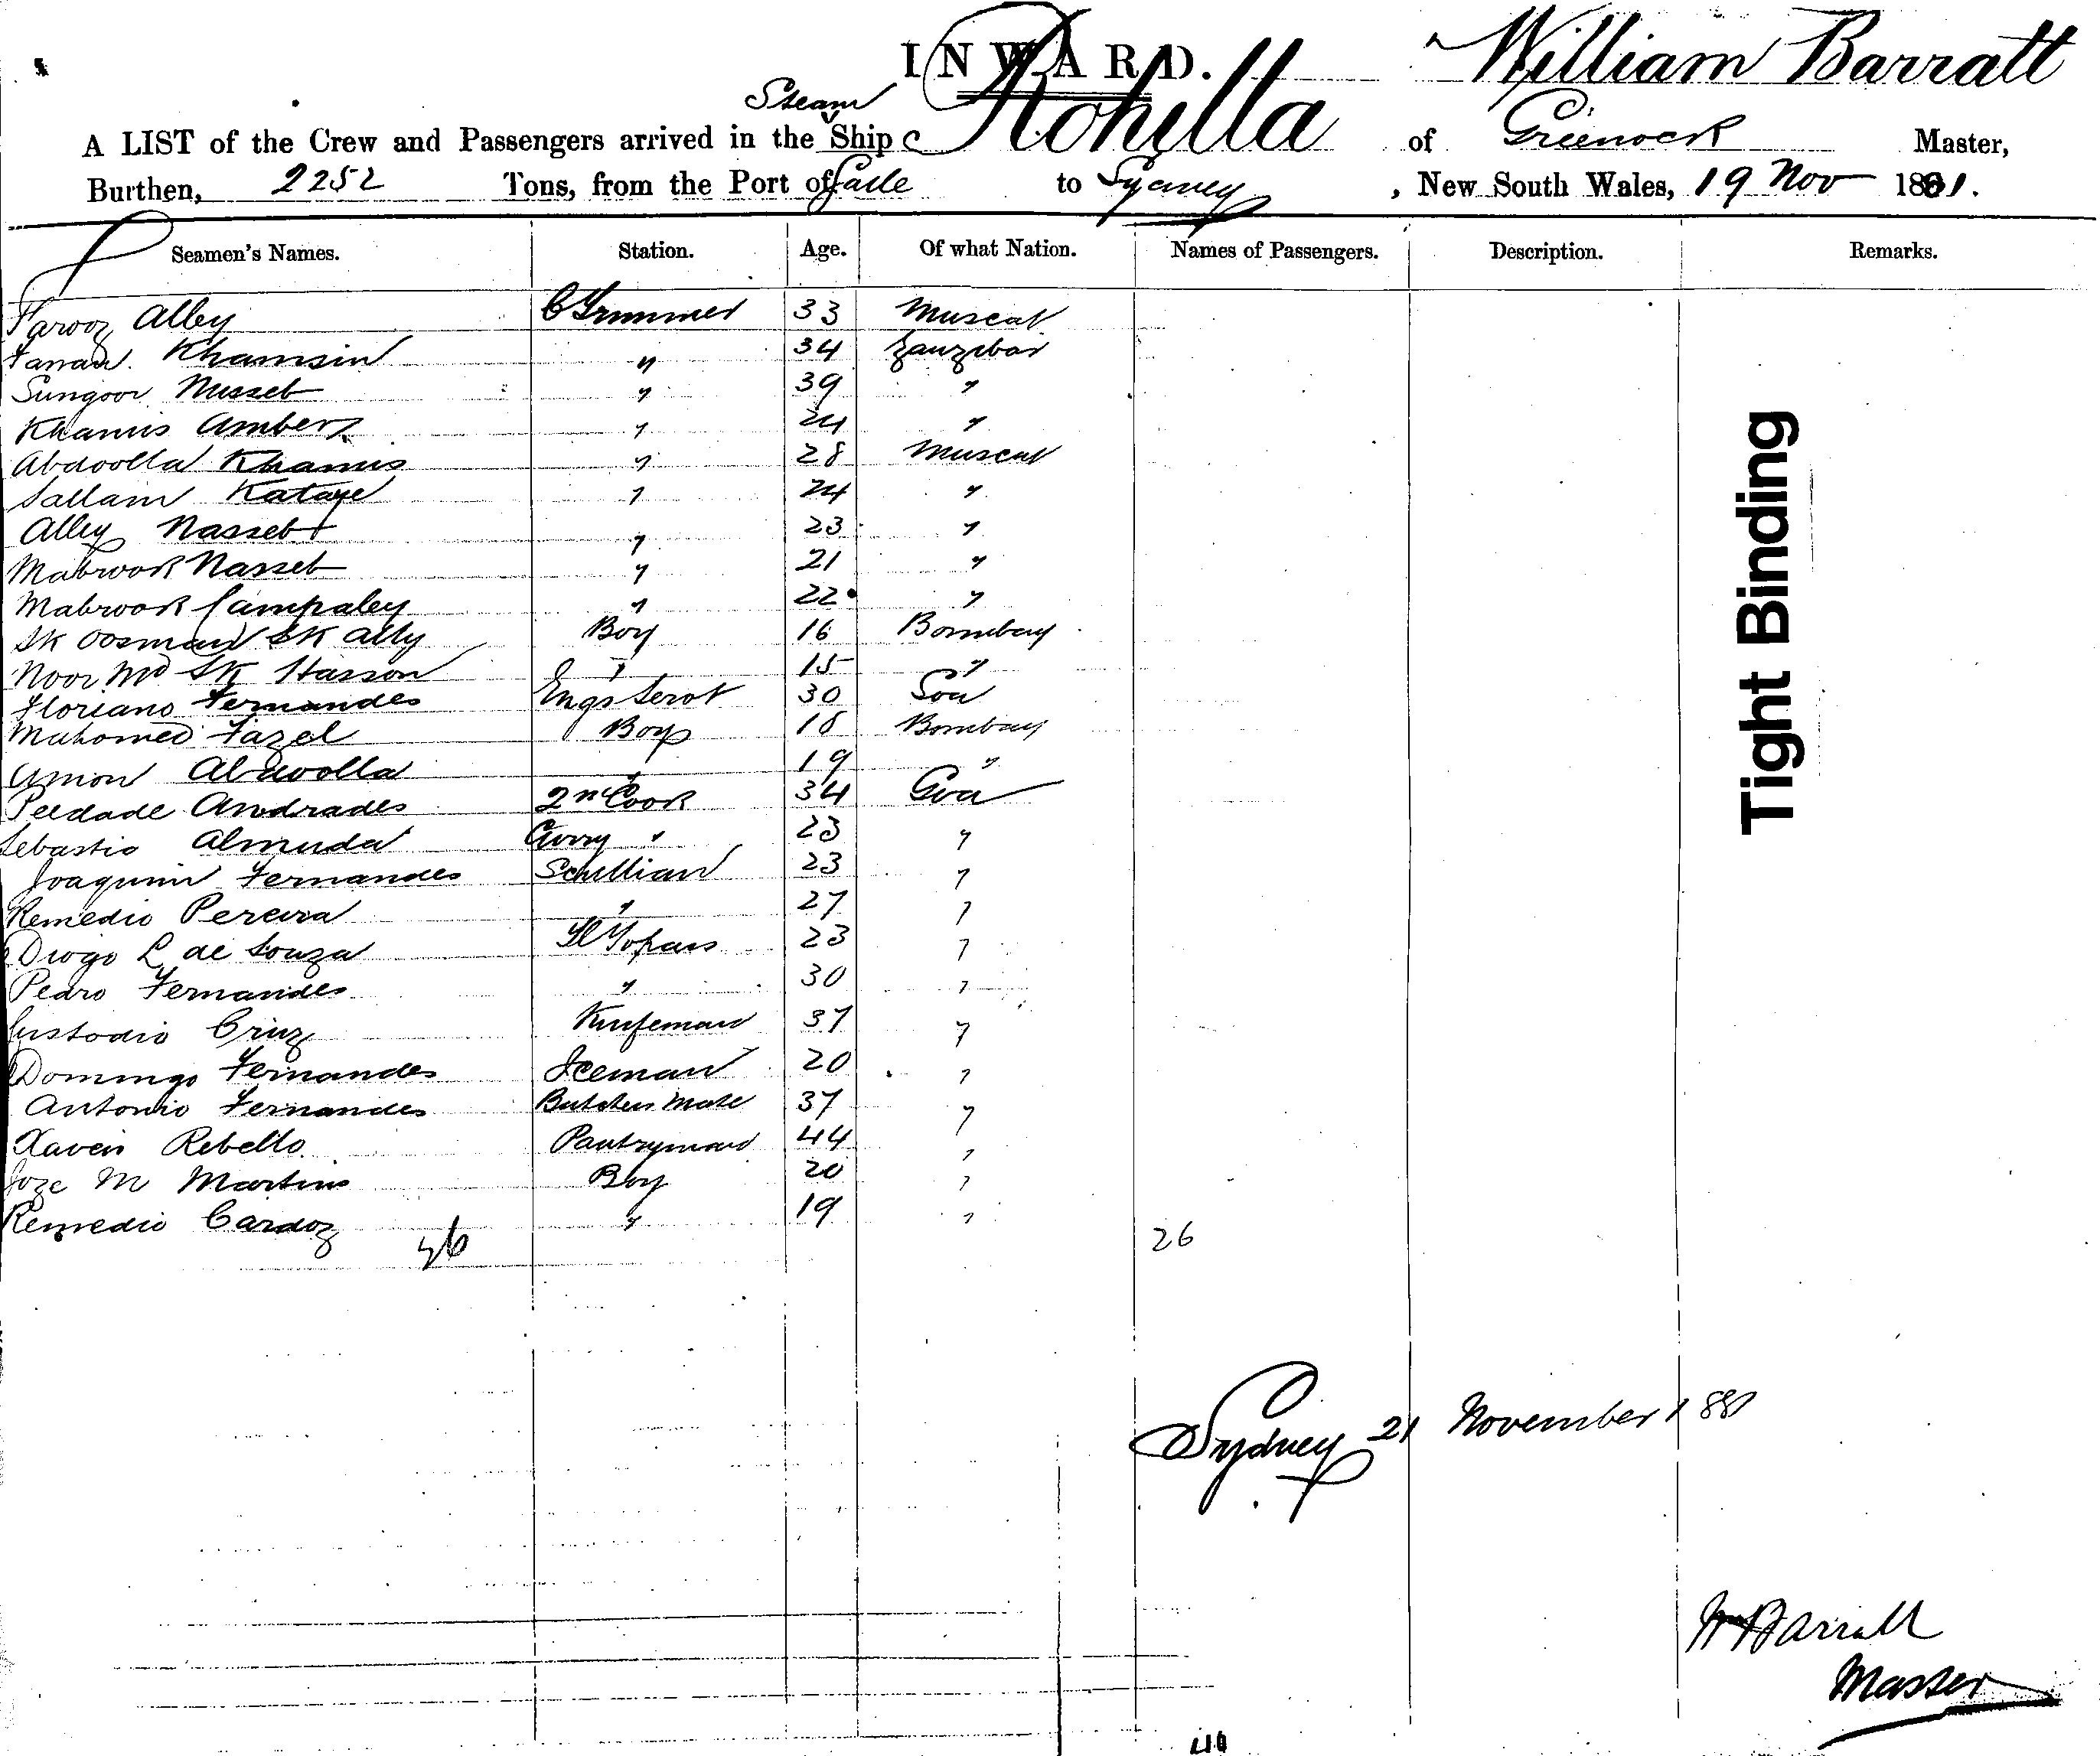 INWARD.
William Barratt
Steam
A LIST of the Crew and Passengers arrived in the Ship Rohilla of Greenock Master,
Burthen, 2252 Tons, from the Port of Galle to Sydney, New South Wales, 19 Nov 1881.
Seamen's Names. Station. Age. Of what Nation. Names of Passengers. Description. Remarks.
Farooz Alley C Trimmer 33 Muscat
Farran Khamsin " 34 Zanzibar
Sungoor Nusseb " 39 "
Khamis Amber " 24 "
Abdoolla Khamis " 28 Muscat
Sallam Kataye " 24 "
Alley Nasseb " 23 "
Mabrook Nasseb " 21 "
Mabrook Campaley " 22 "
Sk Oosman Sk Ally Boy 16 Bombay
Noor Md Sk Hasson " 15 "
Floriano Fernandes Engs Servt 30 Goa
Mahomed Fazel Boy 18 Bombay
Amon Abdoolla " 19 "
Peedade Andrades 2nd Cook 34 Goa
Sebastio Almuda Curry " 23 "
Joaquim Fernandes Scullian 23 "
Remedio Pereira " 27 "
Diogo L de Souza Topass 23 "
Pedro Fernandes " 30 "
Custodio Cruz Knifeman 37 "
Domingo Fernandes Iceman 20 "
Antonio Fernandes Butchers Mate 37 "
Xavier Rebello Pantryman 44 "
Joze M Martins Boy 20 "
Remedio Cardoz " 19 "
26 26
Sydney 21 November 1881
Wm Barratt
Master
Tight Binding